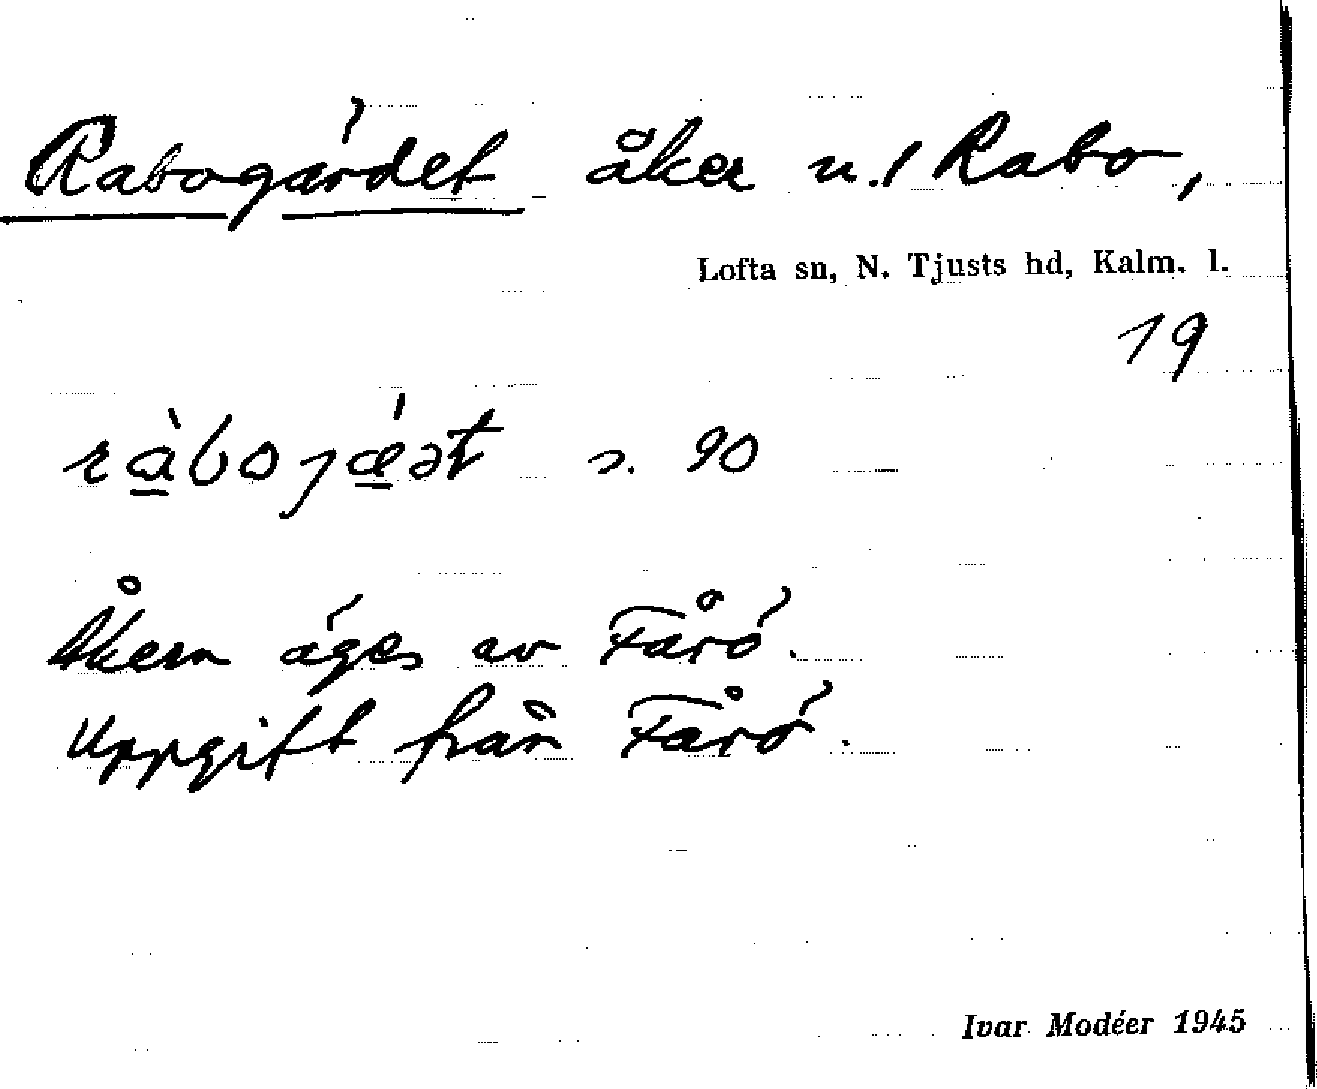 Rabogärdet åker u./ Rabo,
Lofta sn, N. Tjusts hd, Kalm. l.
19
ràbojǽət s. 90
Åkern äges av Fårö.
Uppgift från Fårö.
Ivar Modéer 1945